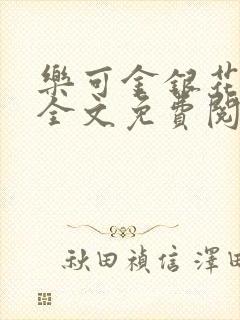 樂可金銀花
全文免費閱
秋田禎信 澤田